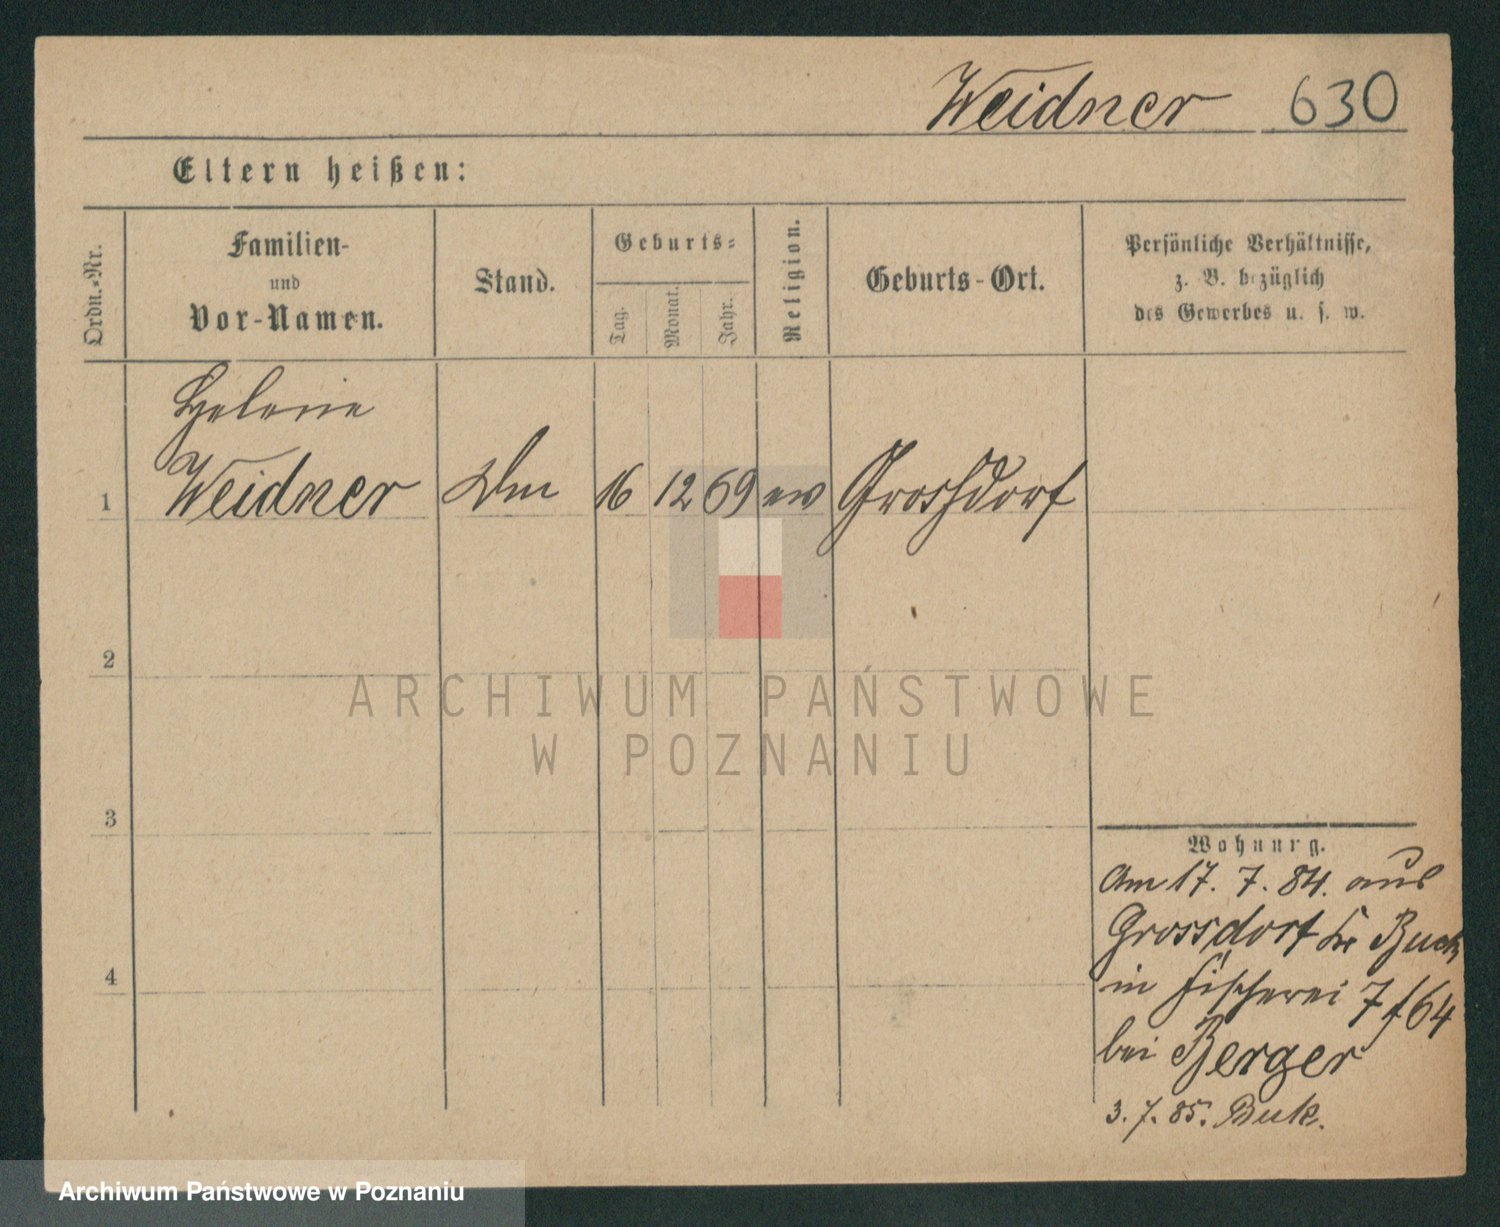 Weidner 630
Eltern heißen:
Ordn.-Nr.
Familien-
und
Vor-Namen.
Stand.
Geburts-
Tag.
Monat.
Jahr.
Religion.
Geburts-Ort.
Persönliche Verhältnisse,
z. B. bezüglich
des Gewerbes u. s. w.
Helene
1 Weidner 16 12 69 ev Grossdorf
2
3
4
ARCHIWUM PAŃSTWOWE
W POZNANIU
Wohnung.
Am 17. 7. 84. aus
Grossdorf Kr Buck
in Fischerei 7 f64
bei Berger
3. 7. 85. Buk.
Archiwum Państwowe w Poznaniu